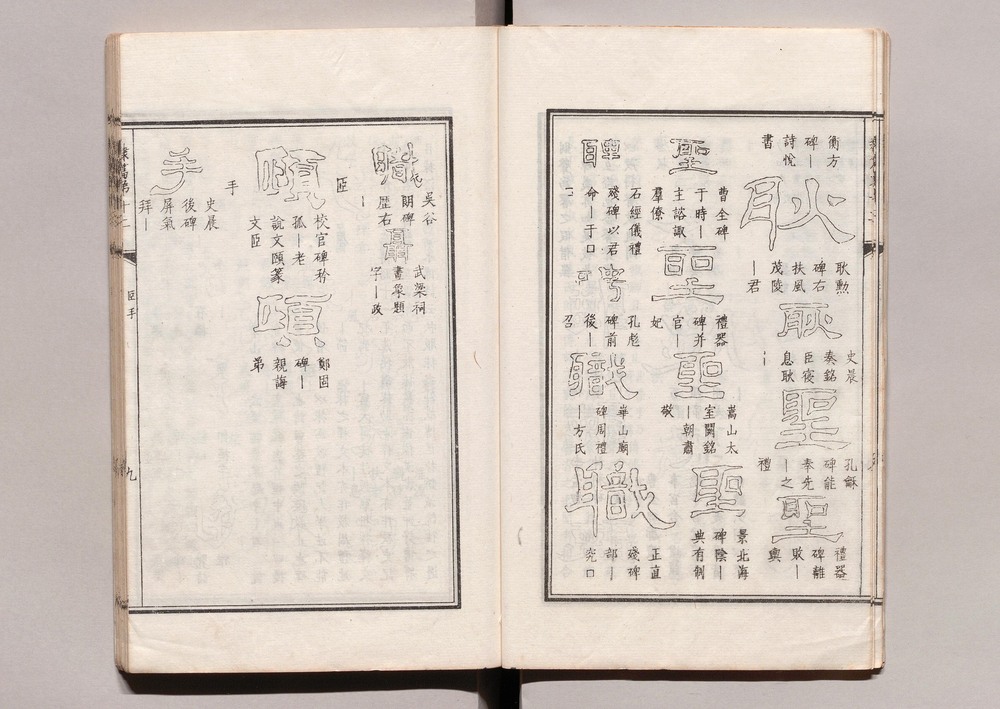 衡方
碑｜
詩悅
書
耿
耿勳
碑右
扶風
茂陵
｜君
耿
史晨
奏銘
臣寑
息耿
｜
聖
孔龢
碑能
奉先
｜之
禮
聖
禮器
碑離
敗｜
輿
聖
曹全碑
于時｜
主諮諏
羣僚
聖
禮器
碑并
官｜
妃
聖
嵩山太
室闕銘
｜朝肅
敬
聖
景北海
碑陰｜
典有制
聘
石經儀禮
殘碑以君
命｜于□
孔彪
碑前
後｜
召
職
華山廟
碑周禮
｜方氏
職
正直
殘碑
部｜
究□
職
吳谷
朗碑
歷右
｜
聶
武梁祠
畫象題
字｜政
𦣞
頤
校官碑矜
孤｜老
說文頤篆
文𦣞
頤
鄭固
碑｜
親誨
弟
手
手
史晨
後碑
屏氣
拜｜
𦣞手
九